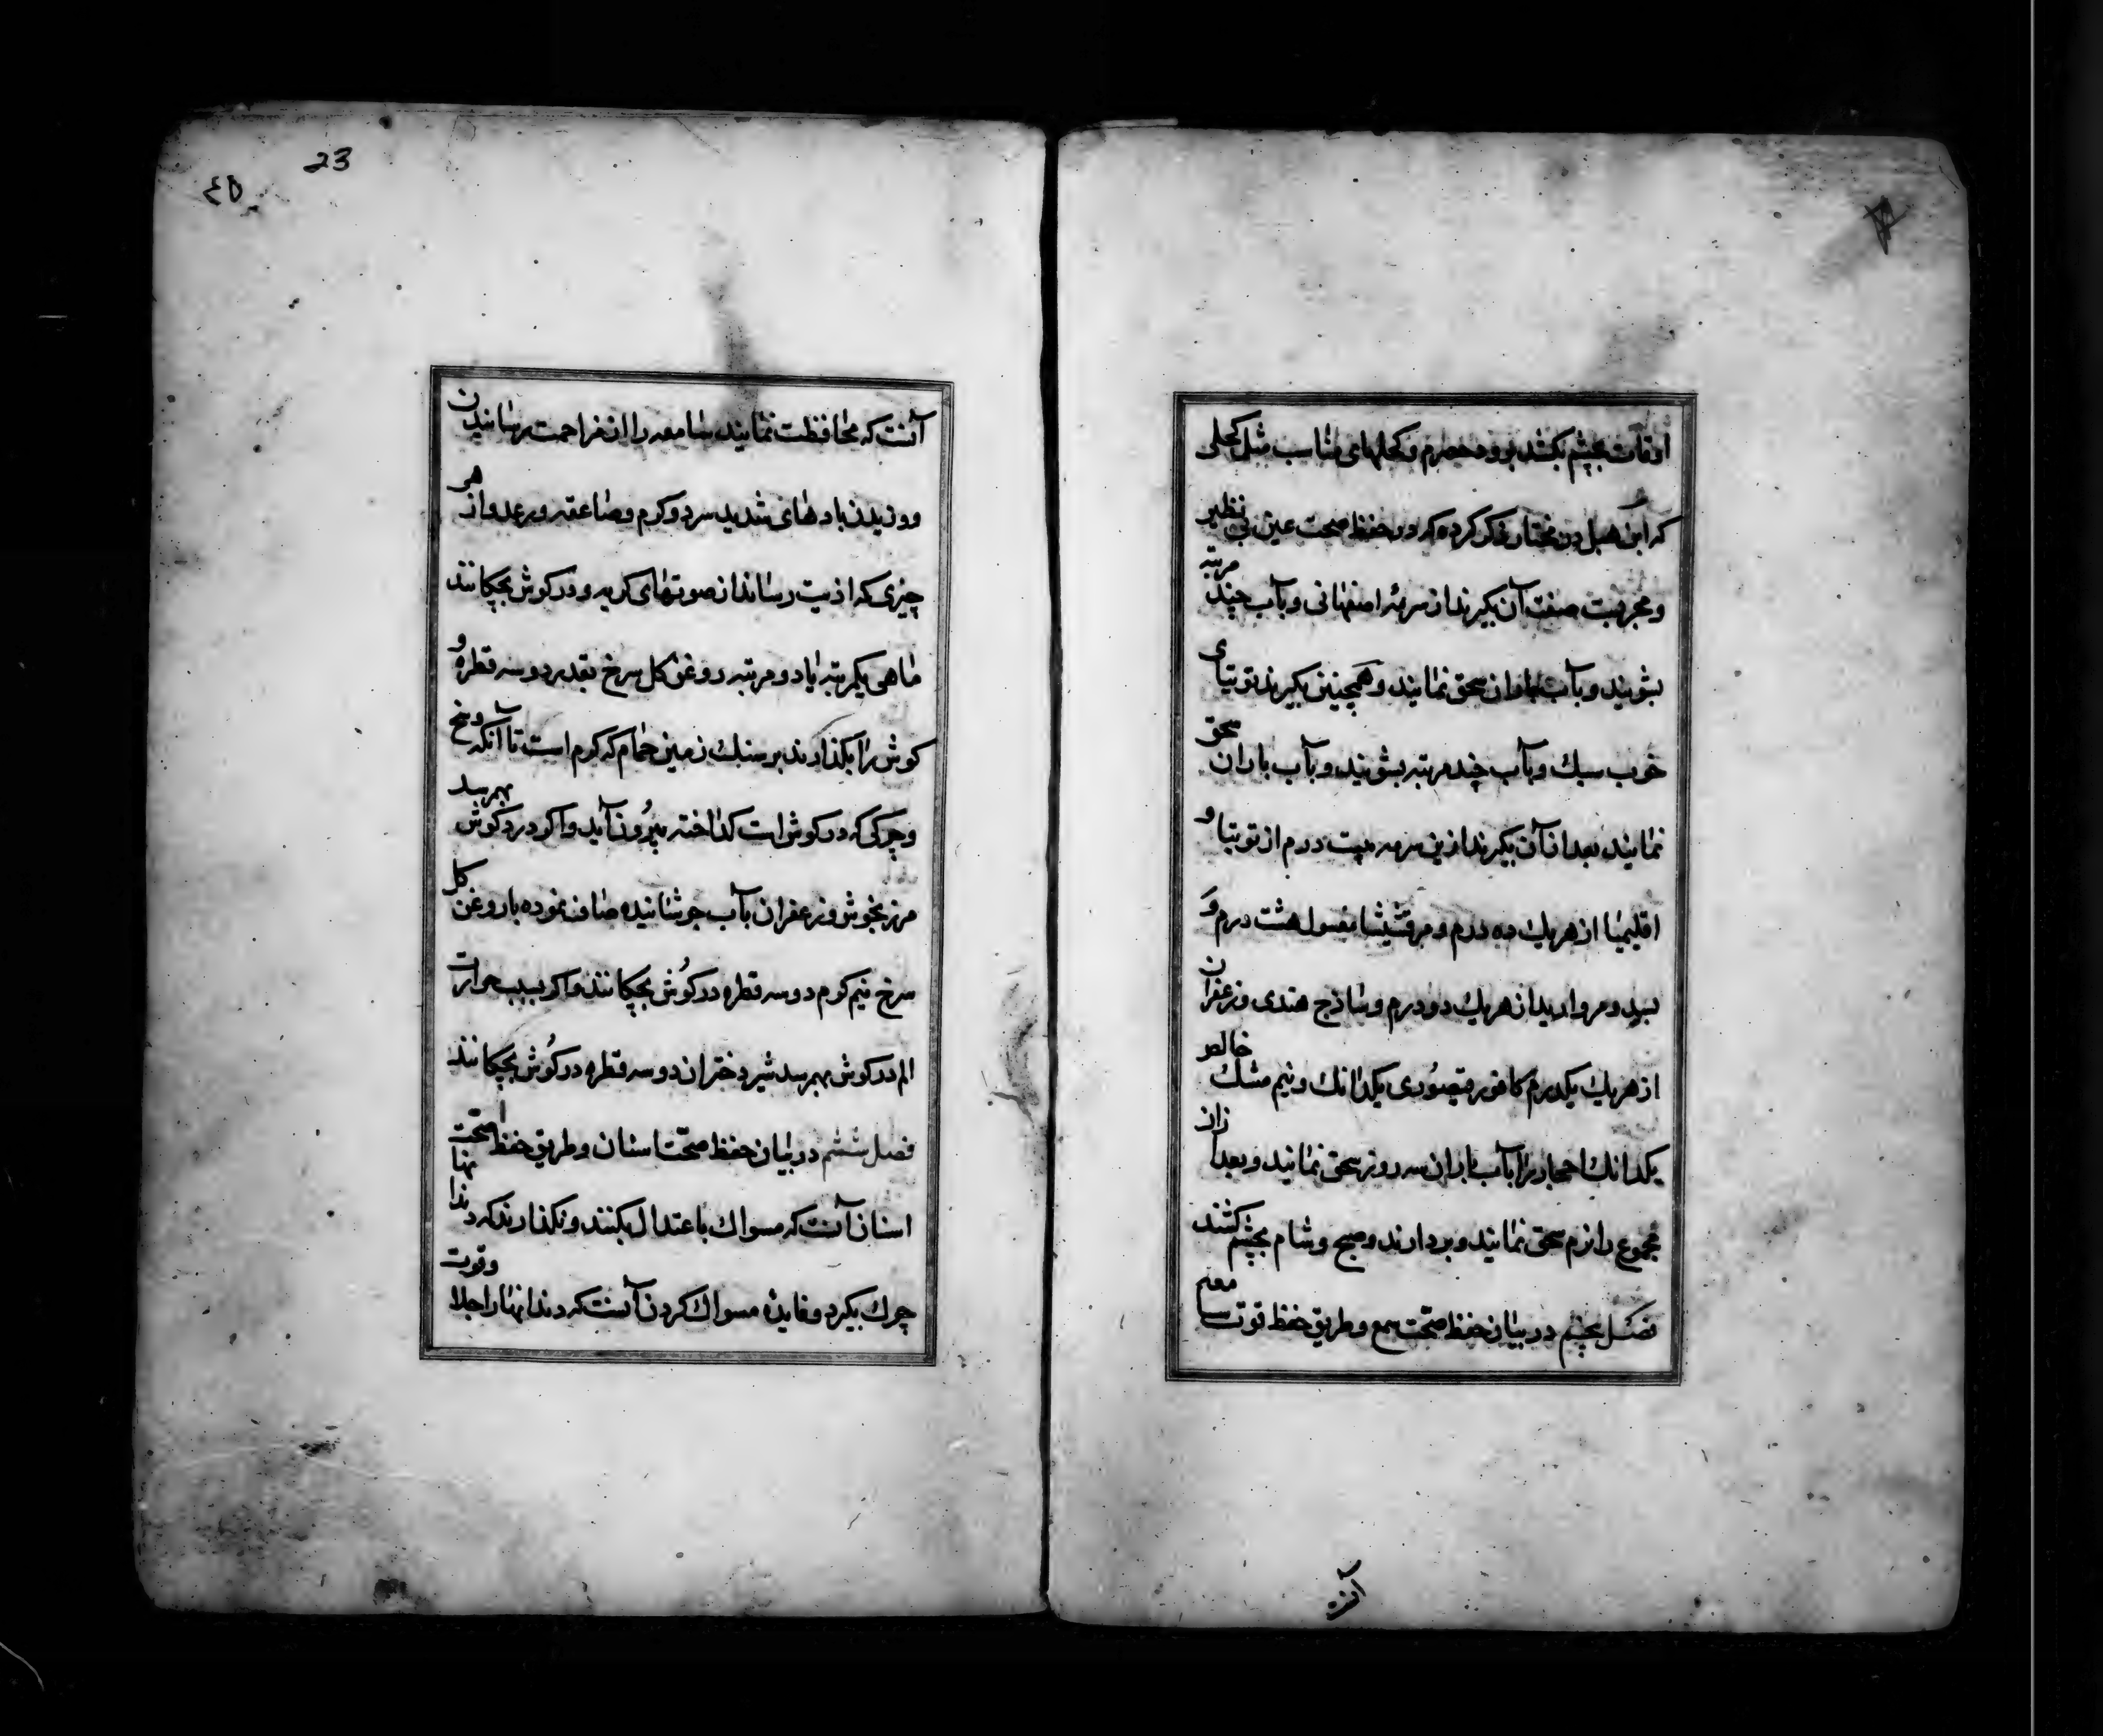 اوقات بچشم بکشند برود حصرم و کحلهای مناسب مثل کحلی
که ابن هبل در مختار ذکر کرده که در حفظ صحت عین بی نظیر
و مجربست صفت آن بکیرند از سرمهٔ اصفهانی و بآب چند مرتبه
بشویند و بآب باران سحق نمایند و همچنین بکیرند توتیای
خوب سبك و بآب چند مرتبه بشویند و بآب باران سحق
نمایند بعد از آن بکیرند ازین سرمه بیست درم از توتیا و
اقلیمیا از هریك ده درم و مرقشیشا مغسول هشت درم و
بسد و مروارید از هریك دو درم و ساذج هندی و زعفران
از هریك یکدرم کافور قیصوری یکدانك و نیم مشك خالص
یکدانك احجار را بآب باران سه روز سحق نمایند و بعد از آن
مجموع را نرم سحق نمایند و بردارند و صبح و شام بچشم کشند
فصل پنجم در بیان حفظ صحت سمع و طریق حفظ قوت سامعه
23
٤٥
آنست که محافظت نمایند سامعه را از مزاحمت رسانیدن
و وزیدن بادهای شدید سرد و کرم و صاعقه و رعد و از هر
چیزی که اذیت رساند از صوتهای کریه و در کوش بچکانند
ماهی یکمرتبه یا دو مرتبه روغن کل سرخ بقدر دو سه قطره و
کوش را بکذارند بر سنك زمین حمام که کرم است تا آنکه وسخ
و چرکی که در کوش است کداخته بیرون آید و اکر درد کوش بهمرسد
مرزنجوش و زعفران بآب جوشانیده صاف نموده با روغن کل
سرخ نیم کرم دو سه قطره در کوش بچکانند و اکر بسبب حرارت
الم در کوش بهمرسد شیر دختران دو سه قطره در کوش بچکانند
فصل ششم در بیان حفظ صحّت اسنان و طریق حفظ صحت
اسنان آنست که مسواك باعتدال بکنند و نکذارند که دندانها
چرك بکیرد و فایدهٔ مسواك کردن آنست که دندانها را جلا و قوت